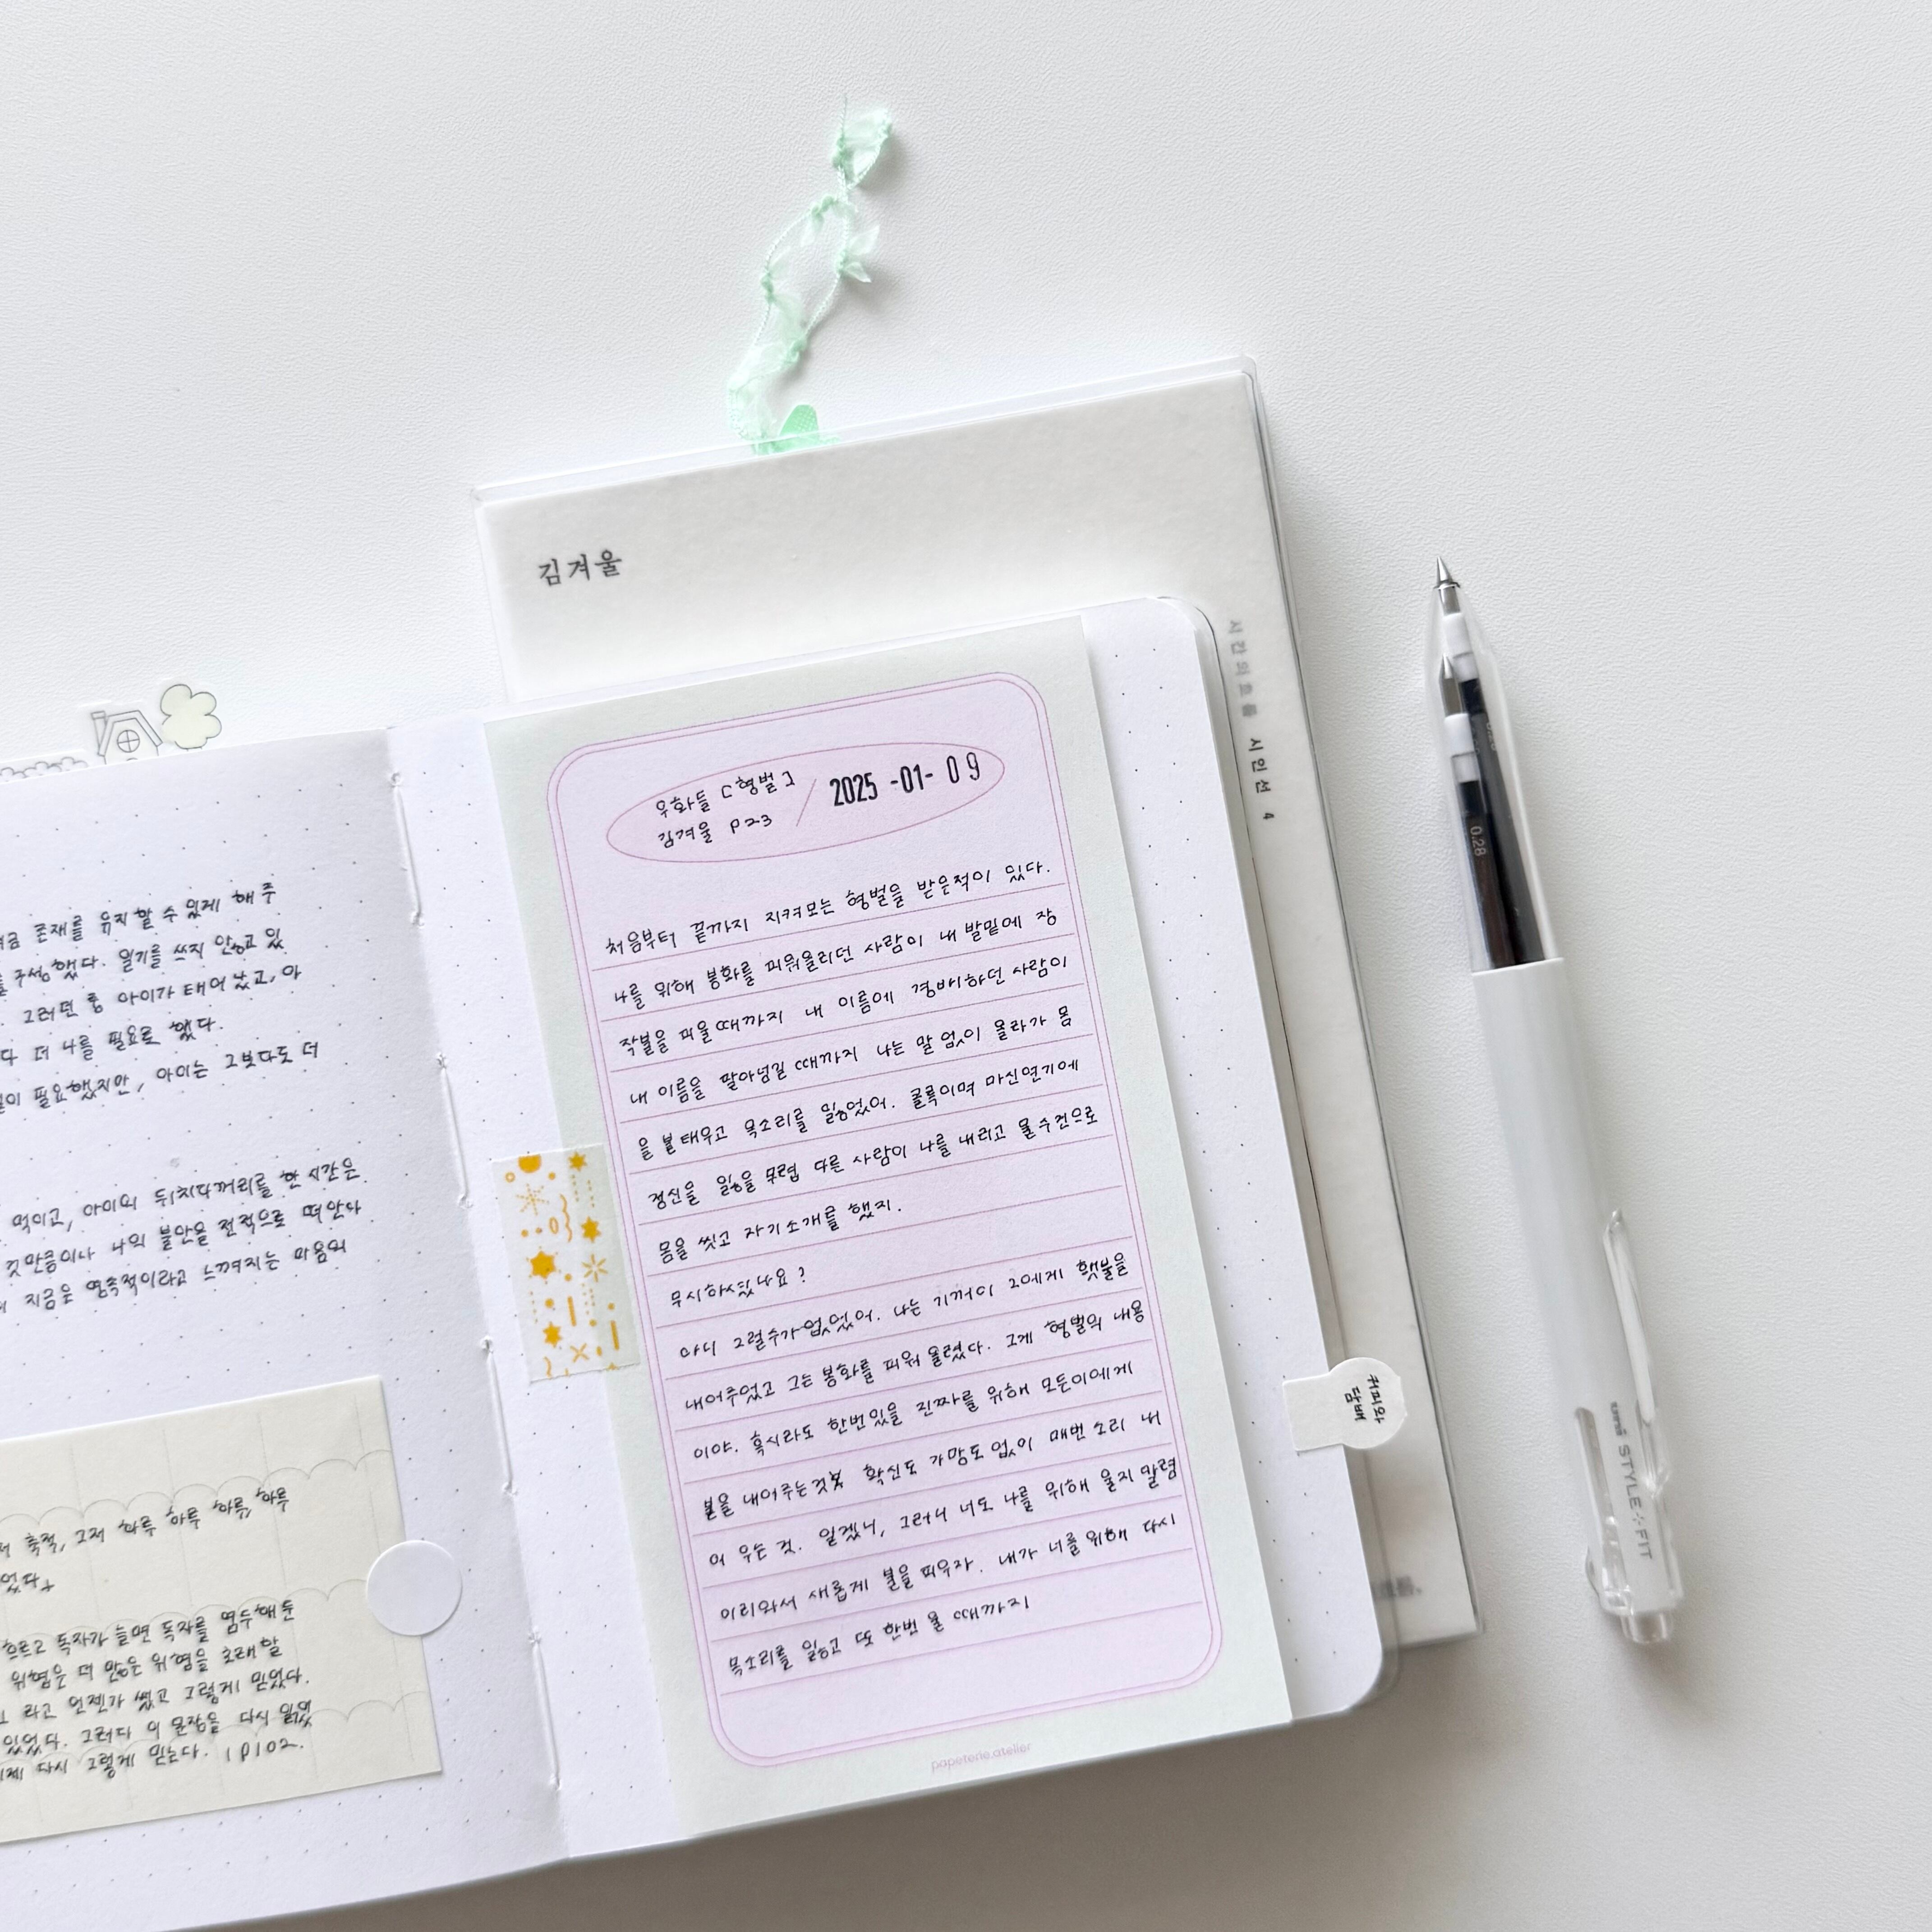 김겨울
시간의흐름 시인선 4
우화들 [형벌]
김겨울 P23
2025 -01- 09
처음부터 끝까지 지켜보는 형벌을 받은적이 있다.
나를 위해 봉화를 피워올리던 사람이 내 발밑에 장
작불을 피울때까지 내 이름에 경배하던 사람이
내 이름을 팔아넘길 때까지 나는 말 없이 올라가 몸
을 불태우고 목소리를 잃었어. 쿨룩이며 마신연기에
정신을 잃을 무렵 다른 사람이 나를 내리고 물수건으로
몸을 씻고 자기소개를 했지.
무시하셨나요?
아니 그럴수가없었어. 나는 기꺼이 그에게 횃불을
내어주었고 그는 봉화를 피워 올렸다. 그게 형벌의 내용
이야. 혹시라도 한번있을 진짜를 위해 모든이에게
불을 내어주는것 확신도 가망도 없이 매번 소리 내
어 우는 것. 알겠니, 그러니 너도 나를 위해 울지 말렴
이리와서 새롭게 불을 피우자. 내가 너를 위해 다시
목소리를 잃고 또 한번 울 때까지
papeterie.atelier
커피와
담배
존재를 유지할 수 있게 해 주
구성했다. 일기를 쓰지 않고 있
그러던 중 아이가 태어 났고, 아
더 나를 필요로 했다.
필요했지만, 아이는 그보다도 더
먹이고, 아이의 뒤치다꺼리를 한 시간은
것만큼이나 나의 불안을 전적으로 떠안다
지금은 영속적이라고 느껴지는 마음의
축적, 그저 하루 하루 하루, 하루
었다.
흐르고 독자가 늘면 독자를 염두해둔
위험은 더 많은 위험을 초래할
라고 언젠가 썼고 그렇게 믿었다.
있었다. 그러다 이 문장을 다시 읽었
다시 그렇게 믿는다. 1P102.
0.28
uni STYLE FIT